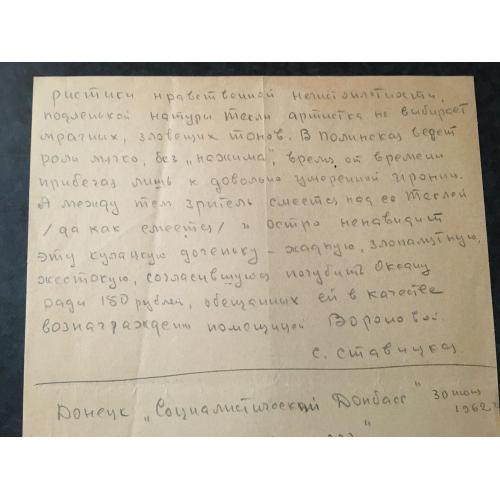 ристики нравственной нечистоплотности,
подленькой натуры Теклі артистка не выбирает
мрачних, зловещих тонов. В Полинская ведет
роль мягко, без "нажима", время от времени
прибегая лишь к довольно умеренной иронии.
А между тем зритель смеется над ее Теклей
/да как смеется/ и остро ненавидит
эту кулацкую доченьку - жадную, злопамятную,
жестокую, согласившуюся погубить Оксану
ради 150 рублей, обещанных ей в качестве
вознаграждения помещицей Вороновой.
С. Ставицкая
Донецк „Социалистический Донбасс" 30 июня
1962 г